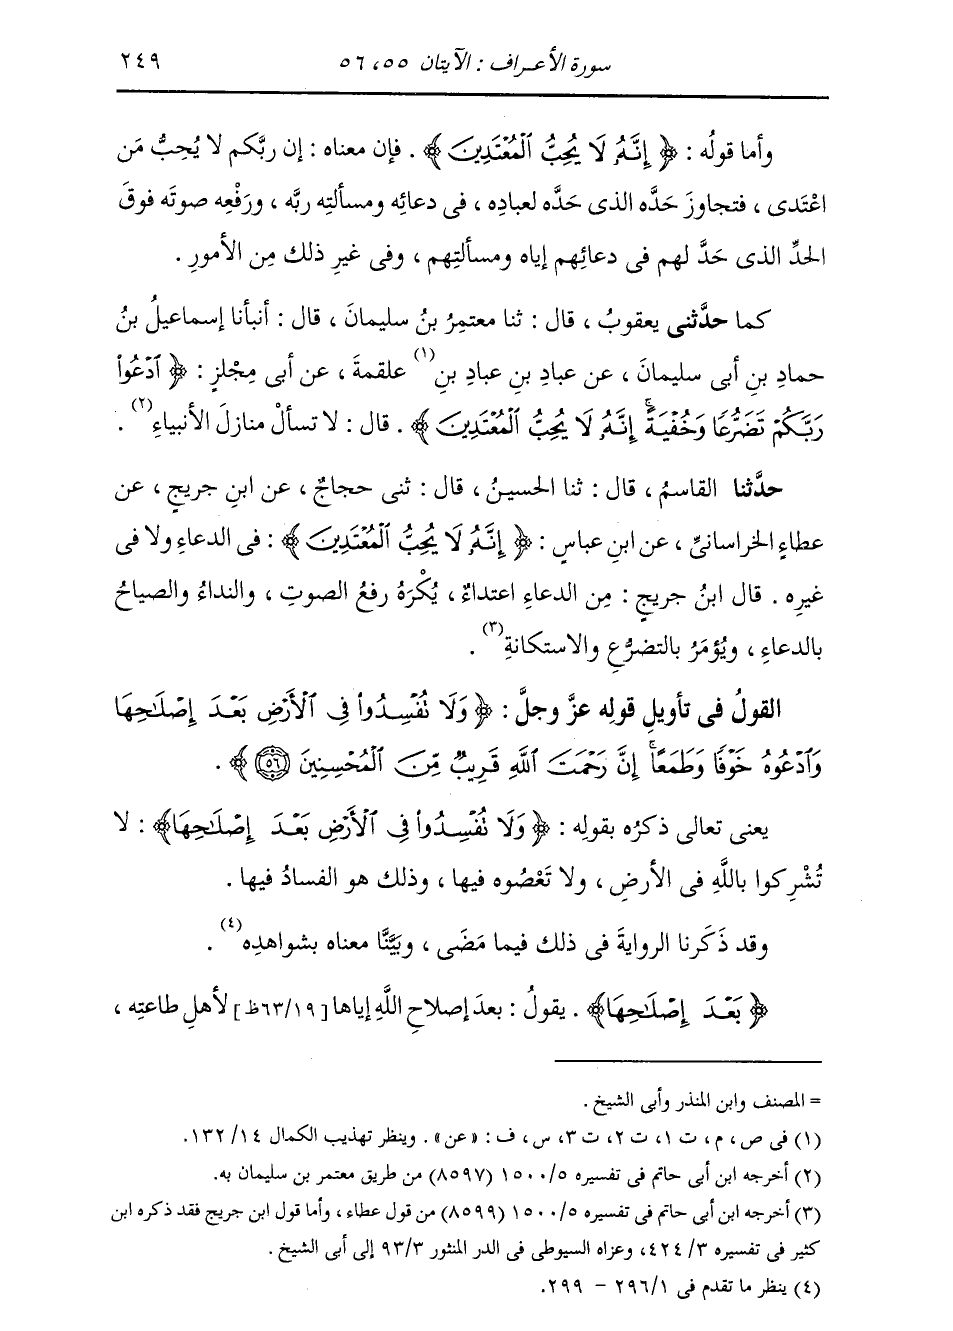 سورة الأعراف : الآيتان ٥٥، ٥٦ ٢٤٩
وأما قولُه : ﴿ إِنَّهُ لَا يُحِبُّ الْمُعْتَدِينَ ﴾ . فإن معناه : إن ربَّكم لا يُحِبُّ مَن
اعْتَدى ، فتجاوزَ حَدَّه الذى حَدَّه لعبادِه ، فى دعائِه ومسألتِه ربَّه ، ورَفْعِه صوتَه فوقَ
الحدِّ الذى حَدَّ لهم فى دعائِهم إياه ومسألتِهم ، وفى غيرِ ذلك مِن الأمورِ .
كما حدَّثنى يعقوبُ ، قال : ثنا معتمِرُ بنُ سليمانَ ، قال : أنبأنا إسماعيلُ بنُ
حمادِ بنِ أبى سليمانَ ، عن عبادِ بنِ عبادِ بنِ(١) علقمةَ ، عن أبى مِجْلَزٍ : ﴿ ادْعُوا
رَبَّكُمْ تَضَرُّعًا وَخُفْيَةً إِنَّهُ لَا يُحِبُّ الْمُعْتَدِينَ ﴾ . قال : لا تسألْ منازلَ الأنبياءِ(٢) .
حدَّثنا القاسمُ ، قال : ثنا الحسينُ ، قال : ثنى حجاجٌ ، عن ابنِ جريجٍ ، عن
عطاءٍ الخراسانىِّ ، عن ابنِ عباسٍ : ﴿ إِنَّهُ لَا يُحِبُّ الْمُعْتَدِينَ ﴾ : فى الدعاءِ ولا فى
غيرِه . قال ابنُ جريجٍ : مِن الدعاءِ اعتداءٌ ، يُكْرَهُ رفعُ الصوتِ ، والنداءُ والصياحُ
بالدعاءِ ، ويُؤمَرُ بالتضرُّعِ والاستكانةِ(٣) .
القولُ فى تأويلِ قولِه عزَّ وجلَّ : ﴿ وَلَا تُفْسِدُوا فِى الْأَرْضِ بَعْدَ إِصْلَاحِهَا
وَادْعُوهُ خَوْفًا وَطَمَعًا إِنَّ رَحْمَتَ اللَّهِ قَرِيبٌ مِّنَ الْمُحْسِنِينَ ٥٦ ﴾ .
يعنى تعالى ذكرُه بقولِه : ﴿ وَلَا تُفْسِدُوا فِى الْأَرْضِ بَعْدَ إِصْلَاحِهَا ﴾ : لا
تُشْرِكوا باللَّهِ فى الأرضِ ، ولا تَعْصُوه فيها ، وذلك هو الفسادُ فيها .
وقد ذَكَرنا الروايةَ فى ذلك فيما مَضَى ، وبَيَّنَّا معناه بشواهدِه(٤) .
﴿ بَعْدَ إِصْلَاحِهَا ﴾ . يقولُ : بعدَ إصلاحِ اللَّهِ إياها [٦٣/١٩ظ] لأهلِ طاعتِه ،
= المصنف وابن المنذر وأبى الشيخ .
(١) فى ص ، م ، ت ١، ت ٢، ت ٣، س ، ف : «عن» . وينظر تهذيب الكمال ١٤/ ١٣٢.
(٢) أخرجه ابن أبى حاتم فى تفسيره ١٥٠٠/٥ (٨٥٩٧) من طريق معتمر بن سليمان به.
(٣) أخرجه ابن أبى حاتم فى تفسيره ١٥٠٠/٥ (٨٥٩٩) من قول عطاء ، وأما قول ابن جريج فقد ذكره ابن
كثير فى تفسيره ٣/ ٤٢٤، وعزاه السيوطى فى الدر المنثور ٩٣/٣ إلى أبى الشيخ .
(٤) ينظر ما تقدم فى ٢٩٦/١ – ٢٩٩.